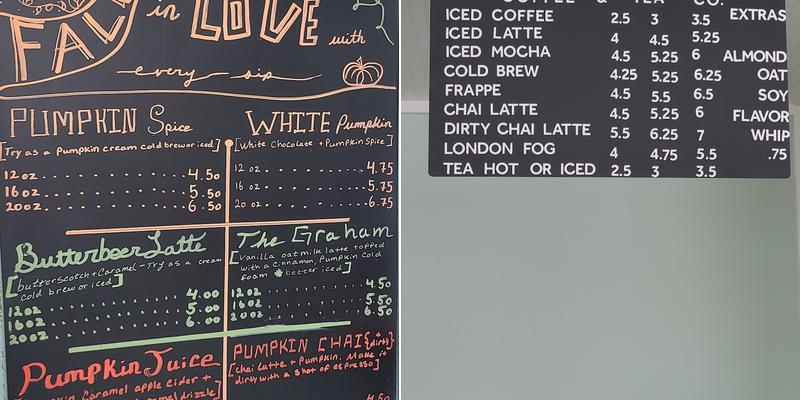 FALL in LOVE
with
every sip
PUMPKIN Spice
[Try as a Pumpkin cream cold brew or iced]
12oz 4.50
16oz 5.50
20oz 6.50
WHITE Pumpkin
[White Chocolate + Pumpkin Spice]
12 oz 4.75
16 oz 5.75
20oz 6.75
Butterbeer Latte
[butterscotch + Caramel - Try as a cream
cold brew or iced]
12oz 4.00
16oz 5.00
20oz 6.00
The Graham
[Vanilla oatmilk latte topped
with a cinnamon, Pumpkin Cold
foam better iced]
12oz 4.50
16oz 5.50
20oz 6.50
Pumpkin Juice
Caramel apple Cider +
caramel drizzle]
PUMPKIN CHAI {dirty}
[chai latte + Pumpkin. Make it
dirty with a shot of espresso]
COFFEE & TEA CO.
ICED COFFEE 2.5 3 3.5
ICED LATTE 4 4.5 5.25
ICED MOCHA 4.5 5.25 6
COLD BREW 4.25 5.25 6.25
FRAPPE 4.5 5.5 6.5
CHAI LATTE 4.5 5.25 6
DIRTY CHAI LATTE 5.5 6.25 7
LONDON FOG 4 4.75 5.5
TEA HOT OR ICED 2.5 3 3.5
EXTRAS
ALMOND
OAT
SOY
FLAVOR
WHIP
.75